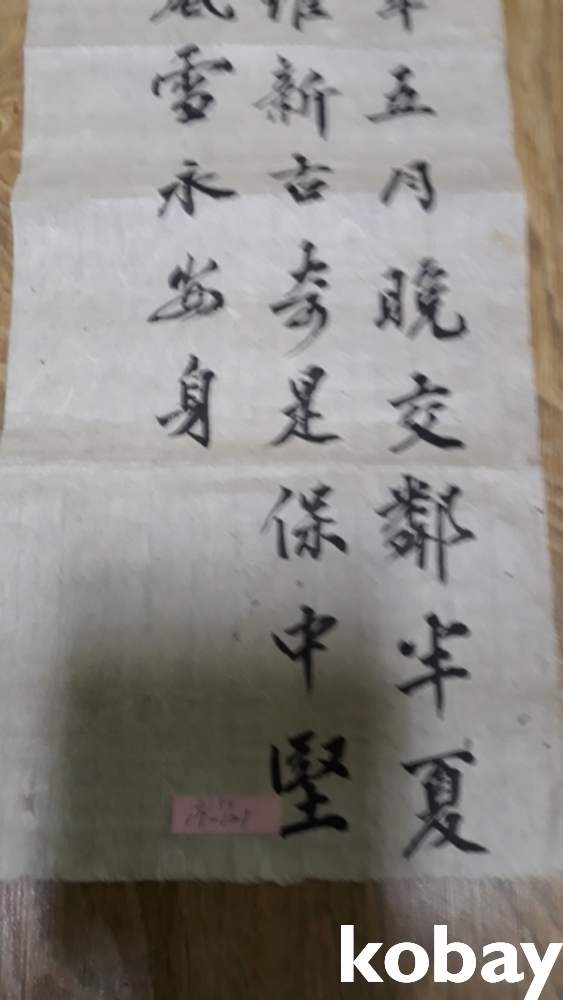 年五月晩交鄰半夏
維新古奇是保中堅
風雪永安身
kobay